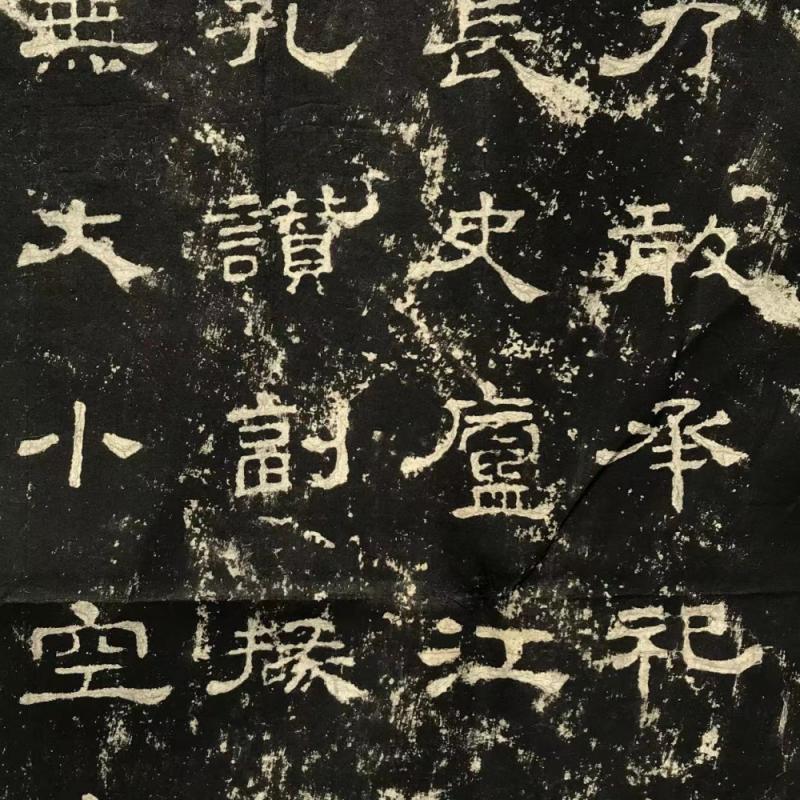 乃敢承祀
長史廬江
孔讚副掾
無大小空